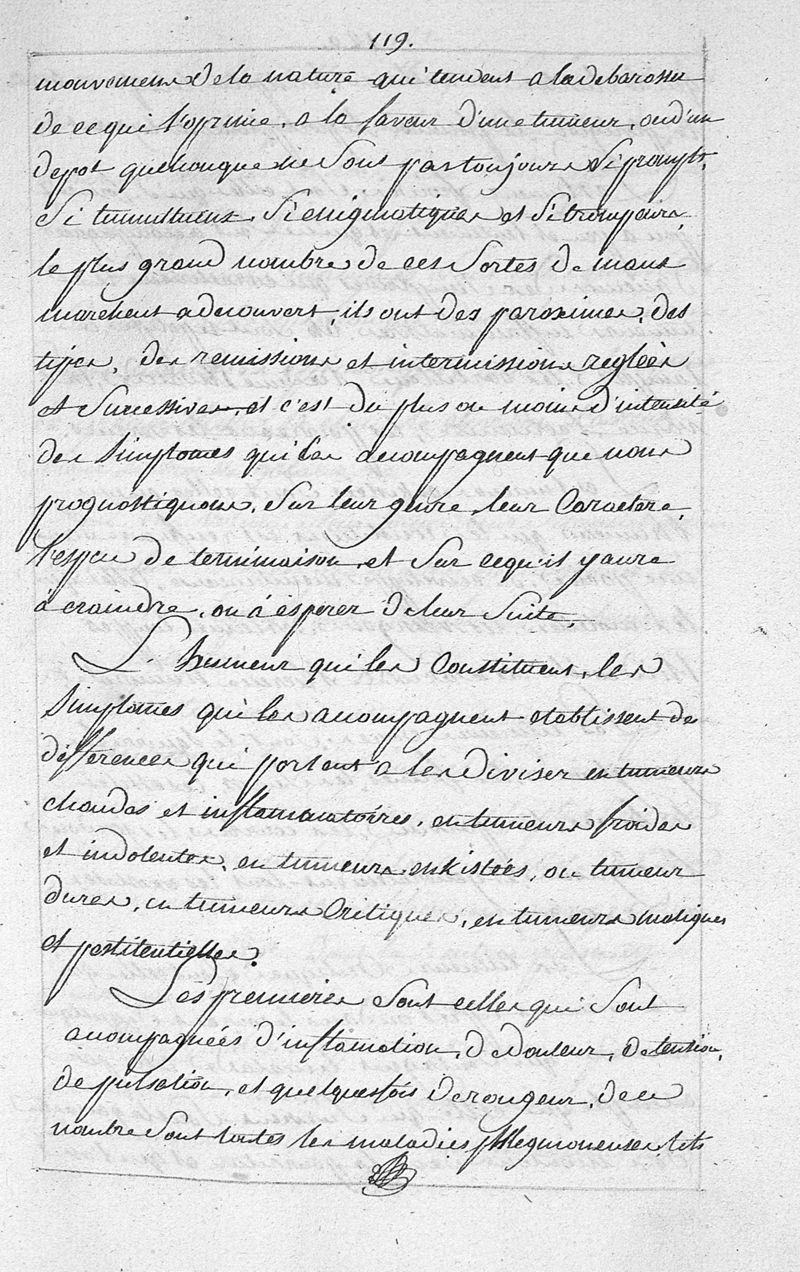 119.
mouvemens de la nature qui tendent a la debarasser
de ce qui l'oprime, a la faveur d'une tumeur, ou d'un
depot quelconque ne sont pas toujours si prompts,
si tumultueux, si enigmatiques et si trompeurs,
le plus grand nombre de ces sortes de maux
marchent a decouvert, ils ont des paroximes, des
tipes, des remissions et intermissions reglées
et successives, et c'est du plus ou moins d'intensité
des simptomes qui les acompagnent que nous
prognostiquons, sur leur genre, leur caractere,
l'espece de terminaison, et sur ce qu'il y aura
à craindre, ou à ésperer de leur suite.
L'humeur qui les constituent, les
simptomes qui les acompagnent etablissent des
differences qui portent a les diviser en tumeurs
chaudes et inflamatoires, en tumeurs froides
et indolentes, en tumeurs enkistées, ou tumeur
dures, en tumeurs critiques, en tumeurs malignes
et pestitentielles.
Les premieres sont celles qui sont
acompagnées d'inflamation, de douleur, de tention,
de pulsation, et quelquefois de rougeur, de ce
nombre sont toutes les maladies phlegmoneuses, tels